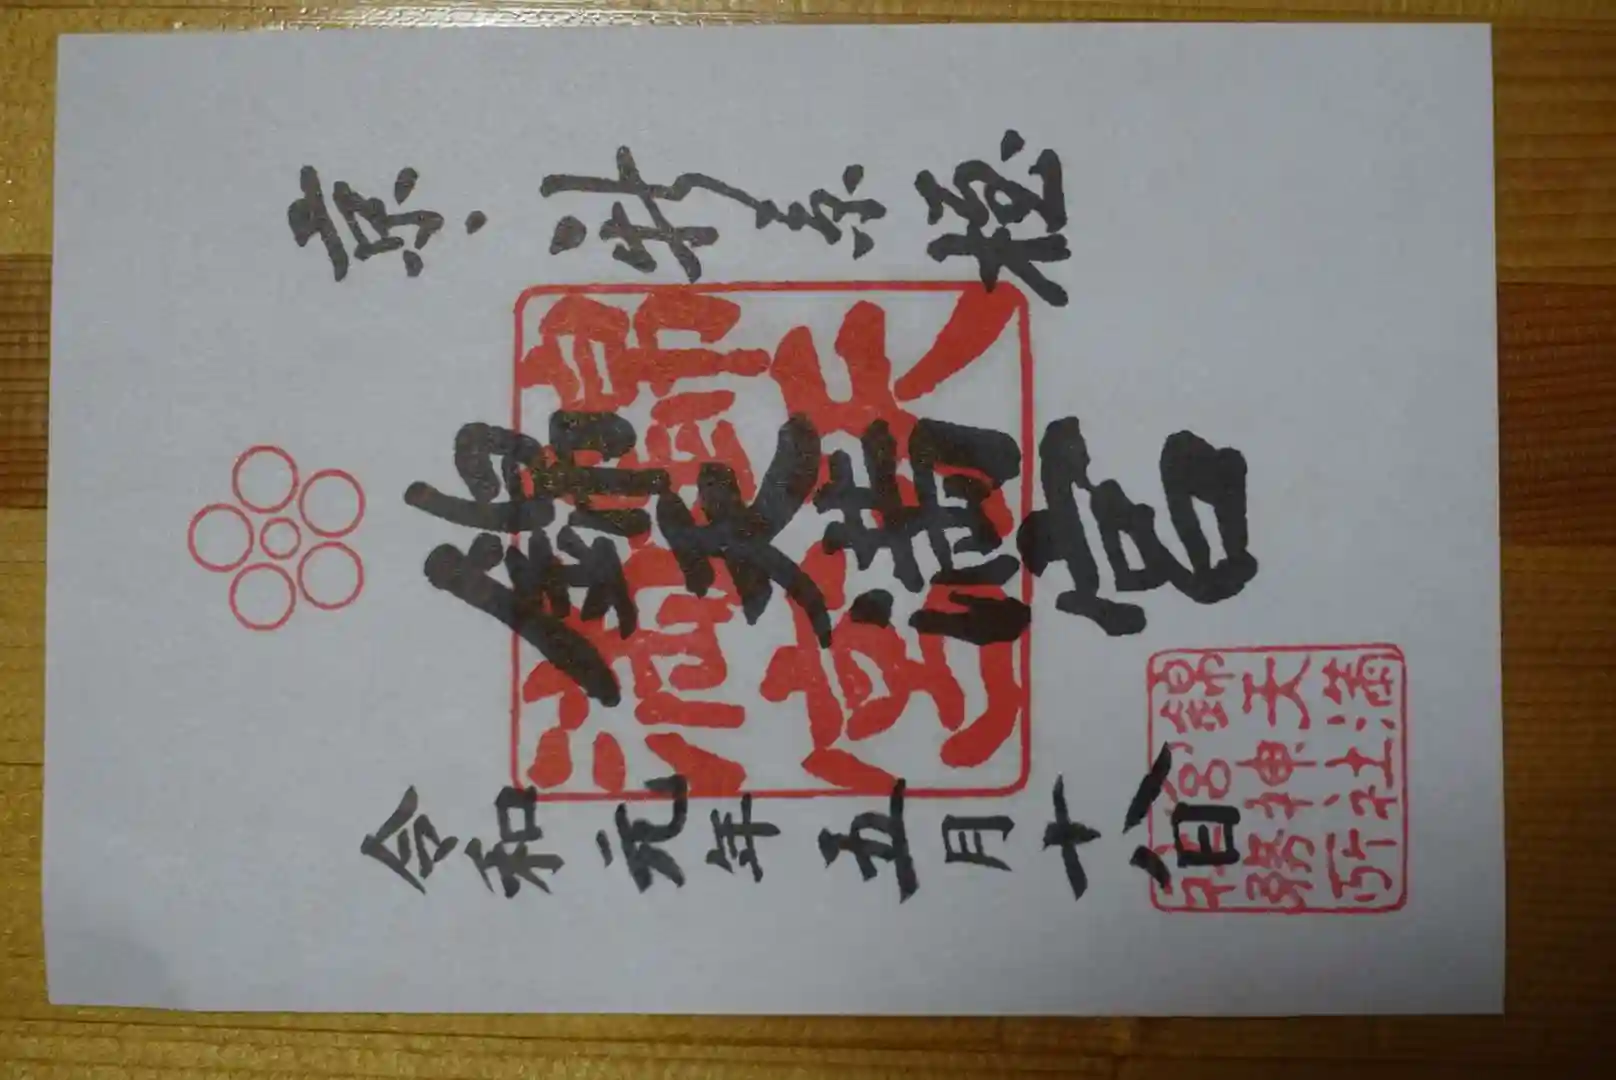 京・新京極
錦天満宮
令和元年五月十八日
錦天
満宮
錦天満
宮神社
社務所